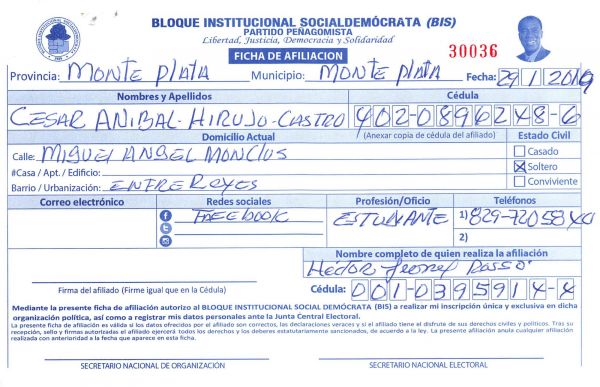 BLOQUE INSTITUCIONAL SOCIALDEMÓCRATA (BIS)
PARTIDO PEÑAGOMISTA
Libertad, Justicia, Democracia y Solidaridad
FICHA DE AFILIACION
30036
Provincia: MONTE PLATA Municipio: MONTE PLATA Fecha: 29/1/2019
Nombres y Apellidos Cédula
CESAR ANIBAL-HIRUJO-CASTRO 402-0896248-6
Domicilio Actual (Anexar copia de cédula del afiliado) Estado Civil
Calle: MIGUEL ANGEL MONCIUS Casado
#Casa / Apt. / Edificio: Soltero
Barrio / Urbanización: ENTRE REYES Conviviente
Correo electrónico Redes sociales Profesión/Oficio Teléfonos
FACEBOOK ESTUDIANTE 1) 829-720
2)
Nombre completo de quien realiza la afiliación
Héctor Leonel
Firma del afiliado (Firme igual que en la Cédula) Cédula: 001-0395914-4
Mediante la presente ficha de afiliación autorizo al BLOQUE INSTITUCIONAL SOCIAL DEMÓCRATA (BIS) a realizar mi inscripción única y exclusiva en dicha
organización política, así como a registrar mis datos personales ante la Junta Central Electoral.
La presente ficha de afiliación es válida si los datos ofrecidos por el afiliado son correctos, las declaraciones veraces y si el afiliado tiene el disfrute de sus derechos civiles y políticos. Tras su
recepción, sello y firmas autorizadas el afiliado ejercerá todos los derechos y los deberes estatutariamente sancionados, de acuerdo a la ley. La presente afiliación anula cualquier afiliación
realizada con anterioridad a la fecha que aparece en esta ficha.
SECRETARIO NACIONAL DE ORGANIZACIÓN SECRETARIO NACIONAL ELECTORAL